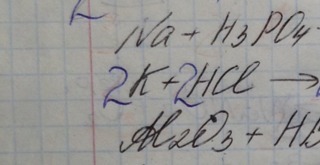 Na + H3PO4
2K+2HCl →
Al2O3 + H